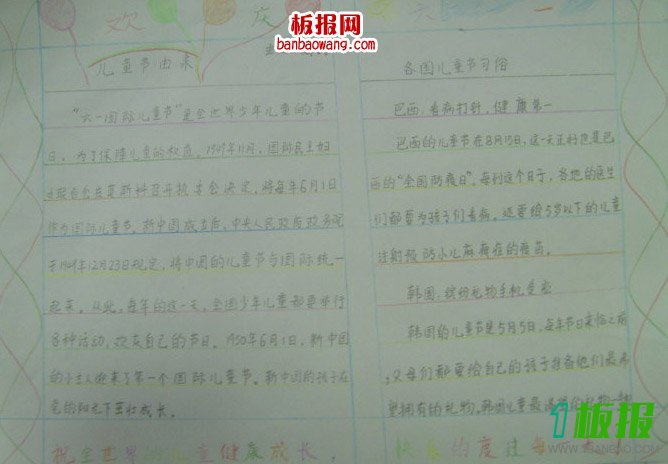 欢 庆 六 一
板报网
banbaowang.com
儿童节由来
“六一国际儿童节”是全世界少年儿童的节
日。为了保障儿童的权益，1949年11月，国际民主妇
女联合会在莫斯科召开执委会决定，将每年6月1日
作为国际儿童节。新中国成立后，中央人民政府政务院
于1949年12月23日规定，将中国的儿童节与国际统一
起来。从此，每年的这一天，全国少年儿童都要举行
各种活动，欢庆自己的节日。1950年6月1日，新中国
的小主人迎来了第一个国际儿童节。新中国的孩子在
党的阳光下茁壮成长。
各国儿童节习俗
巴西，看病打针，健康第一
巴西的儿童节在8月15日，这一天正好也是巴
西的“全国防疫日”。每到这个日子，各地的医生
们都要为孩子们看病，还要给5岁以下的儿童
注射预防小儿麻痹症的疫苗。
韩国，缤纷礼物手机受宠
韩国的儿童节是5月5日，每年节日来临之前
，父母们都要给自己的孩子准备他们最希
望拥有的礼物。韩国儿童最
祝全世界 童健康成长，
快乐的度过每
1板报
1BANBAO.COM